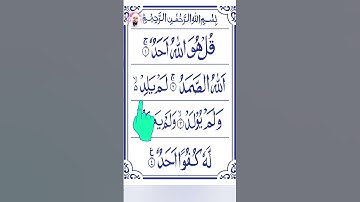 بِسْمِ اللهِ الرَّحْمٰنِ الرَّحِيْمِ
قُلْ هُوَ اللّٰهُ اَحَدٌ ۚ ۱
اَللّٰهُ الصَّمَدُ ۚ ۲ لَمْ يَلِدْ ۙ
وَلَمْ يُوْلَدْ ۙ ۳ وَلَمْ
لَّهٗ كُفُوًا اَحَدٌ ۴